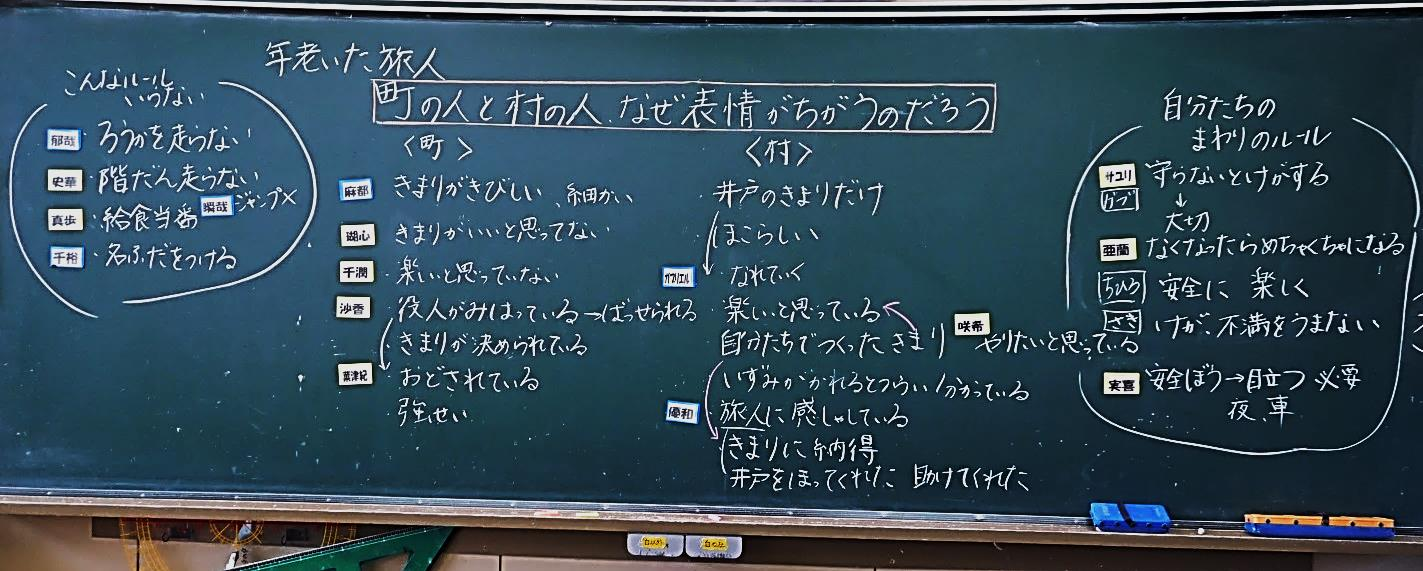 年老いた旅人
町の人と村の人、なぜ表情がちがうのだろう
こんなルール
いらない
郁哉 ・ろうかを走らない
史華 ・階だん走らない
瞬哉 ジャンプ×
真歩 ・給食当番
千裕 ・名ふだをつける
〈町〉
麻都 ・きまりがきびしい、細かい
湖心 ・きまりがいいと思ってない
千潤 ・楽しいと思っていない
沙香 ・役人がみはっている→ばっせられる
・きまりが決められている
菜津紀 ・おどされている
・強せい
〈村〉
・井戸のきまりだけ
ほこらしい
ガブリエル ・なれていく
・楽しいと思っている
・自分たちでつくったきまり
咲希 やりたいと思っている
・いずみがかれるとつらい 分かっている
優和 ・旅人に感しゃしている
きまりに納得
井戸をほってくれた 助けてくれた
自分たちの
まわりのルール
サユリ 守らないとけがする
↓
大切
亜蘭 なくなったらめちゃくちゃになる
ちひろ 安全に 楽しく
さき けが、不満をうまない
実喜 安全ぼう→目立つ 必要
夜、車